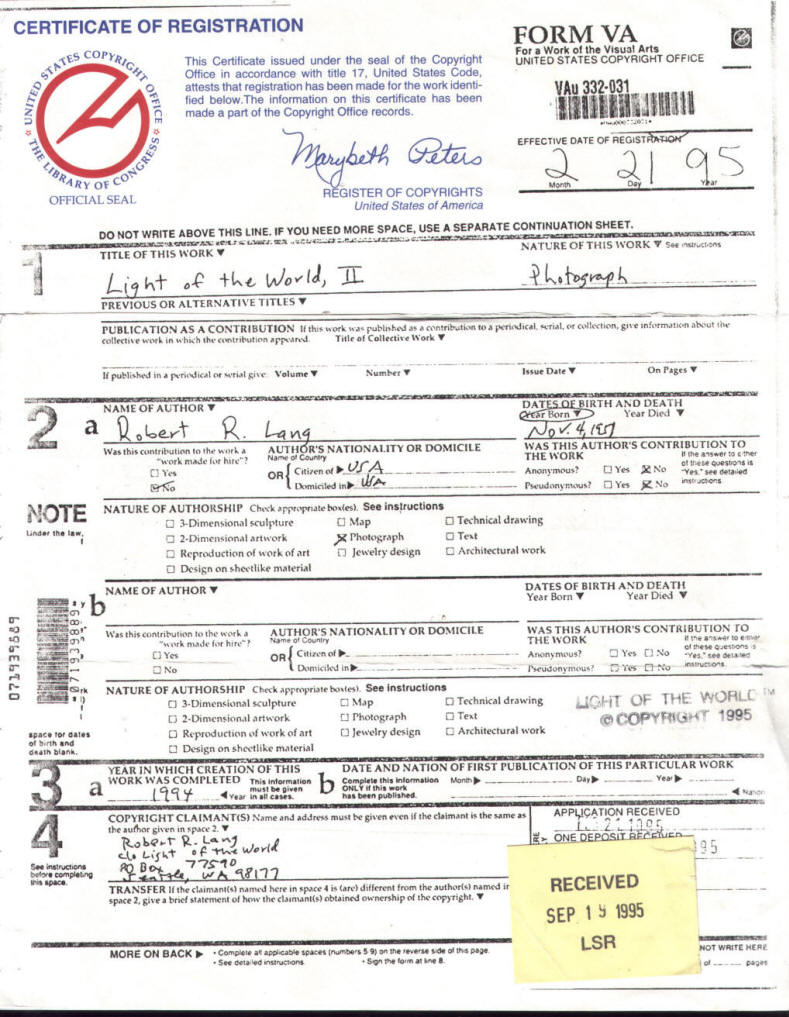 CERTIFICATE OF REGISTRATION
UNITED STATES COPYRIGHT OFFICE
THE LIBRARY OF CONGRESS
OFFICIAL SEAL
This Certificate issued under the seal of the Copyright
Office in accordance with title 17, United States Code,
attests that registration has been made for the work identi-
fied below.The information on this certificate has been
made a part of the Copyright Office records.
Marybeth Peters
REGISTER OF COPYRIGHTS
United States of America
FORM VA
For a Work of the Visual Arts
UNITED STATES COPYRIGHT OFFICE
VAu 332-031
EFFECTIVE DATE OF REGISTRATION
2 21 95
Month Day Year
DO NOT WRITE ABOVE THIS LINE. IF YOU NEED MORE SPACE, USE A SEPARATE CONTINUATION SHEET.
1
TITLE OF THIS WORK ▼ NATURE OF THIS WORK ▼ See instructions
Light of the World, II Photograph
PREVIOUS OR ALTERNATIVE TITLES ▼
PUBLICATION AS A CONTRIBUTION If this work was published as a contribution to a periodical, serial, or collection, give information about the
collective work in which the contribution appeared. Title of Collective Work ▼
If published in a periodical or serial give: Volume ▼ Number ▼ Issue Date ▼ On Pages ▼
2
NAME OF AUTHOR ▼ DATES OF BIRTH AND DEATH
Year Born ▼ Year Died ▼
a Robert R. Lang Nov. 4, 
Was this contribution to the work a
"work made for hire"?
☐ Yes
☒ No
AUTHOR'S NATIONALITY OR DOMICILE
Name of Country
OR { Citizen of ▶ USA
Domiciled in ▶ WA
WAS THIS AUTHOR'S CONTRIBUTION TO
THE WORK
Anonymous? ☐ Yes ☒ No
Pseudonymous? ☐ Yes ☒ No
If the answer to either
of these questions is
"Yes," see detailed
instructions.
NOTE
Under the law,
NATURE OF AUTHORSHIP Check appropriate box(es). See instructions
☐ 3-Dimensional sculpture ☐ Map ☐ Technical drawing
☐ 2-Dimensional artwork ☒ Photograph ☐ Text
☐ Reproduction of work of art ☐ Jewelry design ☐ Architectural work
☐ Design on sheetlike material
b
NAME OF AUTHOR ▼ DATES OF BIRTH AND DEATH
Year Born ▼ Year Died ▼
Was this contribution to the work a
"work made for hire"?
☐ Yes
☐ No
AUTHOR'S NATIONALITY OR DOMICILE
Name of Country
OR { Citizen of ▶
Domiciled in ▶
WAS THIS AUTHOR'S CONTRIBUTION TO
THE WORK
Anonymous? ☐ Yes ☐ No
Pseudonymous? ☐ Yes ☐ No
If the answer to either
of these questions is
"Yes," see detailed
instructions.
NATURE OF AUTHORSHIP Check appropriate box(es). See instructions
☐ 3-Dimensional sculpture ☐ Map ☐ Technical drawing
☐ 2-Dimensional artwork ☐ Photograph ☐ Text
☐ Reproduction of work of art ☐ Jewelry design ☐ Architectural work
☐ Design on sheetlike material
LIGHT OF THE WORLD ™
© COPYRIGHT 1995
space for dates
of birth and
death blank.
3
a
YEAR IN WHICH CREATION OF THIS
WORK WAS COMPLETED This information
must be given
1994 ◀ Year in all cases.
b
DATE AND NATION OF FIRST PUBLICATION OF THIS PARTICULAR WORK
Complete this information
ONLY if this work
has been published.
Month ▶ Day ▶ Year ▶
◀ Nation
4
See instructions
before completing
this space.
COPYRIGHT CLAIMANT(S) Name and address must be given even if the claimant is the same as
the author given in space 2. ▼
Robert R. Lang
c/o Light of the World
PO Box 77590
Seattle, WA 98177
TRANSFER If the claimant(s) named here in space 4 is (are) different from the author(s) named in
space 2, give a brief statement of how the claimant(s) obtained ownership of the copyright. ▼
APPLICATION RECEIVED
ONE DEPOSIT RECEIVED
95
RECEIVED
SEP 15 1995
LSR
MORE ON BACK ▶
• Complete all applicable spaces (numbers 5-9) on the reverse side of this page.
• See detailed instructions. • Sign the form at line 8.
NOT WRITE HERE
of pages